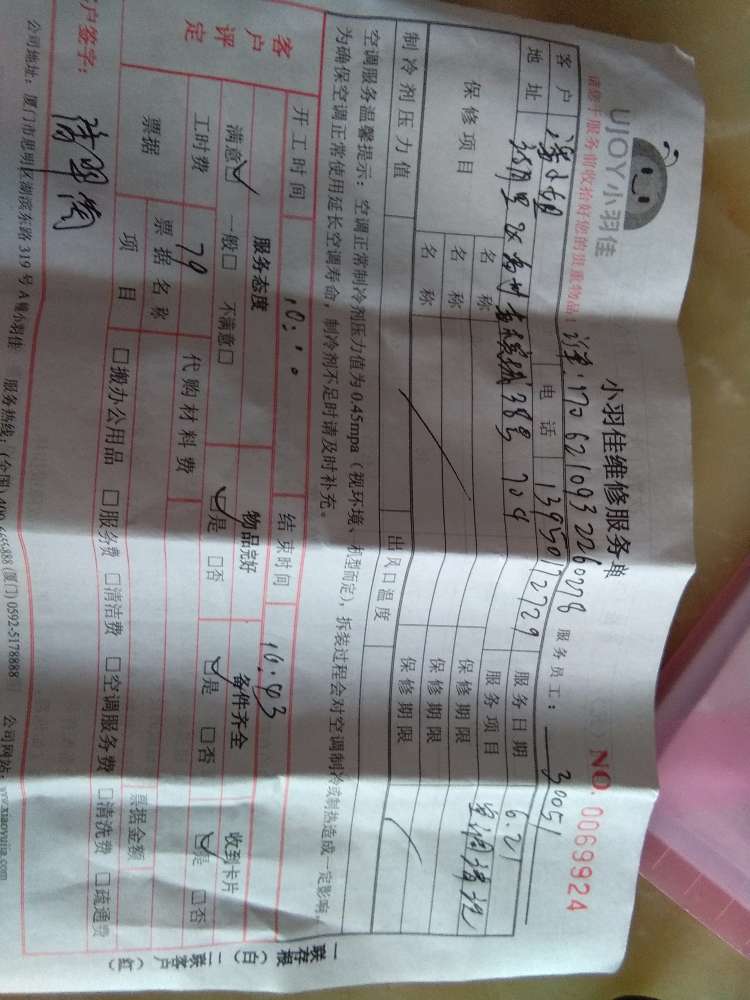 UJOY小羽佳
小羽佳维修服务单
NO. 0069924
请您于服务前收拾好您的贵重物品!
1706210932260278
服务员工: 30051
客户 潘小姐 电话 13950172729 服务日期 6.21
地址 38号 704 服务项目 空调清洗
保修项目 名称 保修期限
名称 保修期限
名称 保修期限
制冷剂压力值 出风口温度
空调服务温馨提示:空调正常制冷剂压力值为0.45mpa(视环境、机型而定),拆装过程会对空调制冷或制热造成一定影响,
为确保空调正常使用延长空调寿命,制冷剂不足时请及时补充。
开工时间 10:10 结束时间 10:43
客户评定 服务态度 物品完好 备件齐全 收到卡片
满意☑ 一般□ 不满意□ ☑是 □否 ☑是 □否 ☑是 □否
工时费 79 代购材料费
票据 票据名称 票据金额
项目 □搬办公用品 □服务费 □清洁费 □空调服务费 □清洗费 □疏通费
户签字:
公司地址:厦门市思明区湖滨东路319号A 小羽佳 服务热线:(全国)400 (厦门)0592-5178888 公司网站:www.xiaoyujia.com
一联存根(白) 二联客户(红)